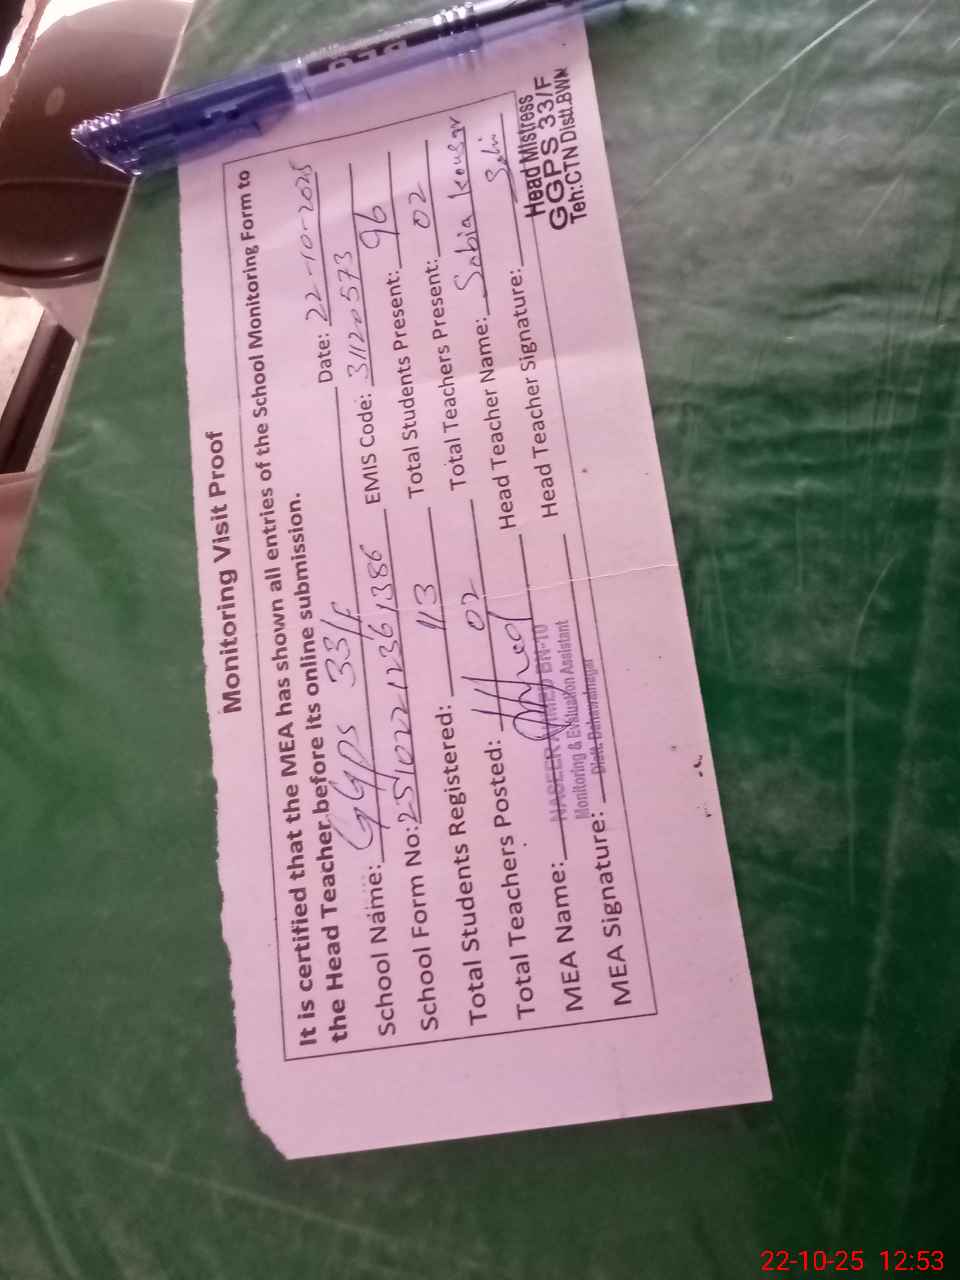 Monitoring Visit Proof
It is certified that the MEA has shown all entries of the School Monitoring Form to
the Head Teacher before its online submission.
Date: 22-10-2025
School Name: GGPS 33/F
EMIS Code: 31120573
School Form No: 251022-12361386
Total Students Present: 96
Total Students Registered: 113
Total Teachers Present: 02
Total Teachers Posted: 02
Head Teacher Name: Sabia kousar
MEA Name: NASEER AHMED BN-10
Monitoring & Evaluation Assistant
Distt. Bahawalnagar
Head Teacher Signature:
MEA Signature:
Head Mistress
GGPS 33/F
Teh:CTN Distt.BWN
22-10-25 12:53